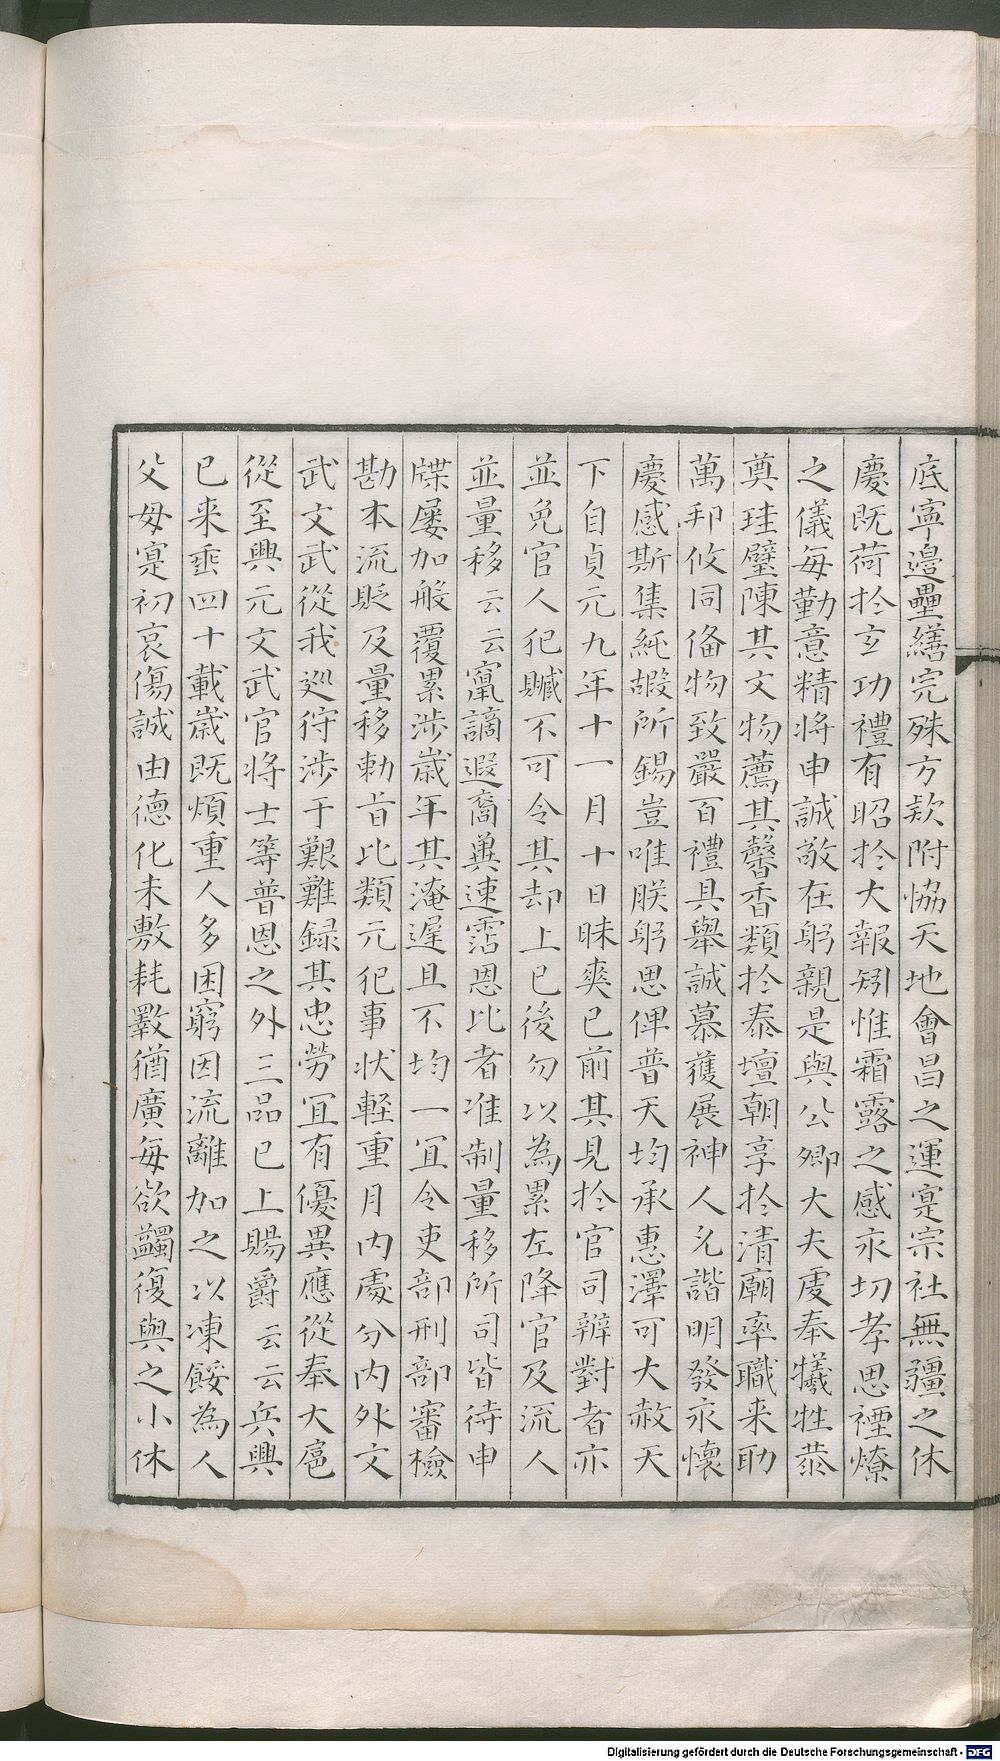 底寧邊壘繕完殊方欵附恊天地會昌之運寔宗社無疆之休
慶既荷扵玄功禮有昭扵大報矧惟霜露之感永切孝思禋燎
之儀每勤意精将申誠敬在躬親是與公卿大夫虔奉犧牲恭
奠珪璧陳其文物薦其馨香類扵泰壇朝享扵清廟率職来助
萬邦攸同俻物致嚴百禮具舉誠慕獲展神人允諧明發永懷
慶感斯集純嘏所錫豈唯朕躬思俾普天均承惠澤可大赦天
下自貞元九年十一月十日昧爽已前其見扵官司辨對者亦
並免官人犯贓不可令其却上已後勿以為累左降官及流人
並量移云云竄謫遐裔兾速霑恩比者准制量移所司皆待申
牒屡加般覆累渉歳年其淹遲且不均一冝令吏部刑部審檢
勘本流貶及量移勅旨比類元犯事状輕重月内處分内外文
武文武從我廵狩渉于艱難録其忠勞冝有優異應從奉大扈
從至興元文武官将士等普恩之外三品已上賜爵云云兵興
已来垂四十載歳既煩重人多困窮因流離加之以凍餒為人
父母寔初哀傷誠由德化未敷耗斁猶廣每欲蠲復與之小休
Digitalisierung gefördert durch die Deutsche Forschungsgemeinschaft - DFG